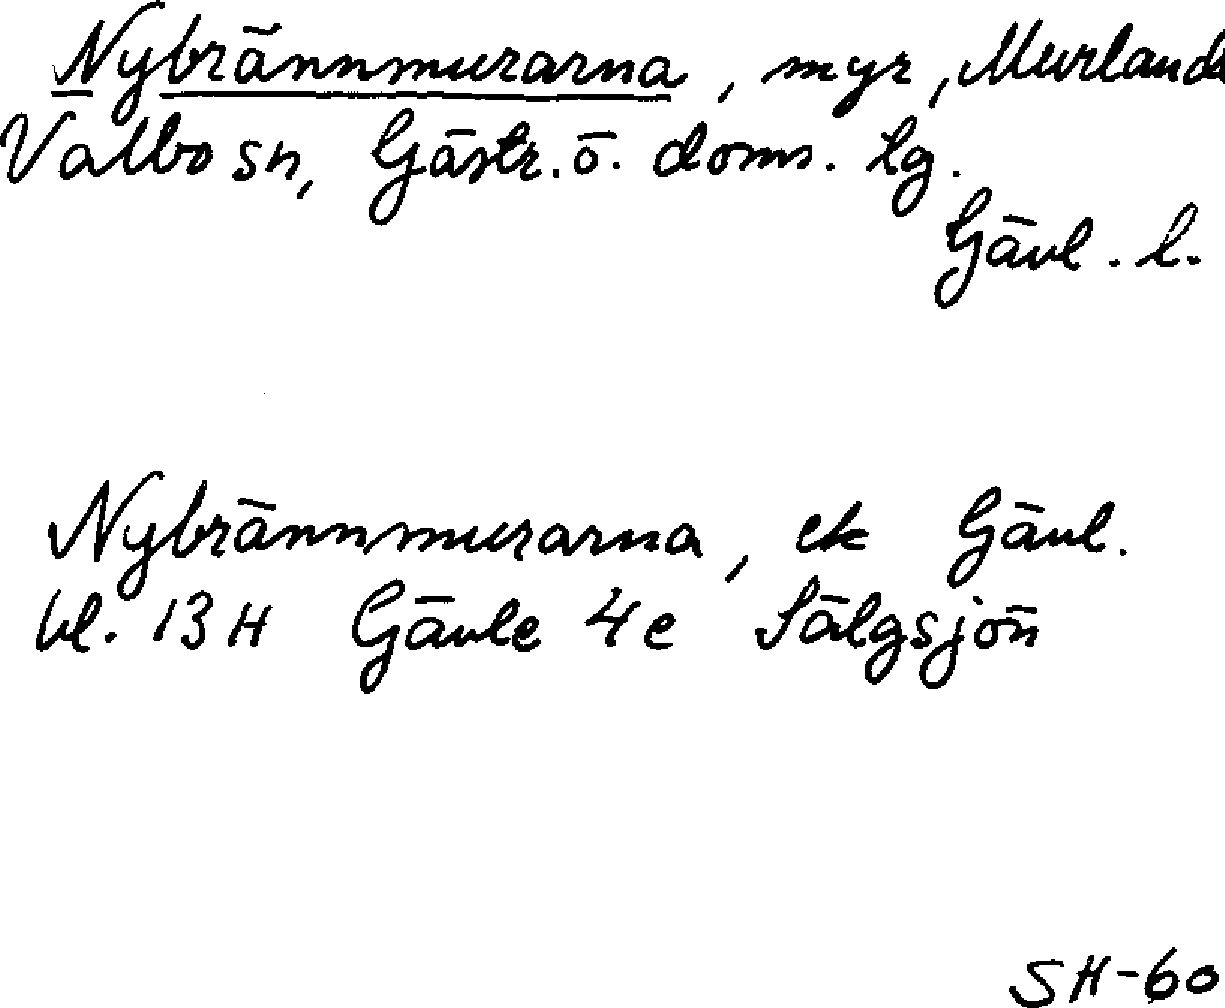 Nybrännmurarna, myr, Murlanda
Valbo sn, Gästr. ö. doms. lg.
Gävl. l.
Nybrännmurarna, ek Gävl.
bl. 13 H Gävle 4 e Sälgsjön
SH-60